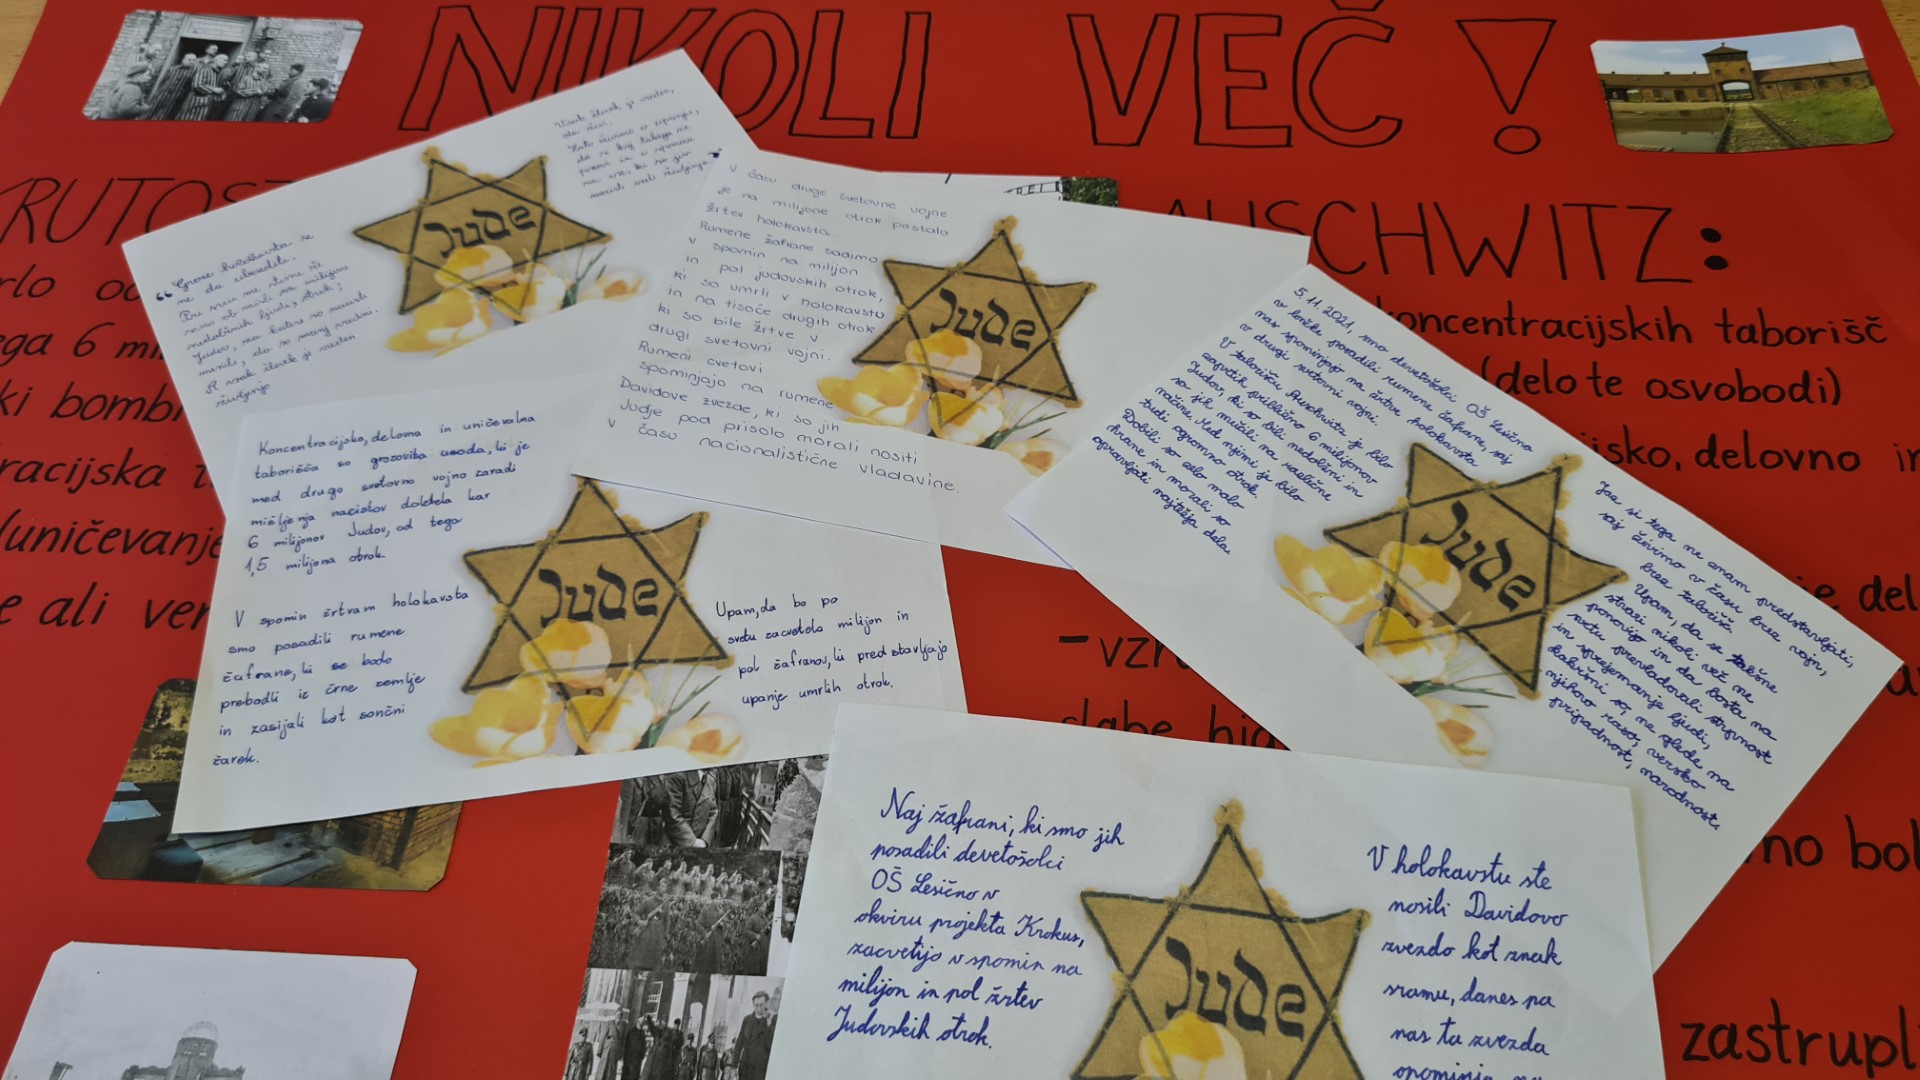 NIKOLI VEČ!
AUSCHWITZ:
koncentracijskih taborišč
(delo te osvobodi)
delovno in
zastrupl
ega 6
ki bomb
racijska
uničevanje
e ali
"Groze holokavsta se
ne da ubesediti.
Pri srcu me stisne že
samo ob misli na milijone
nedolžnih ljudi, otrok,
Judov, za katere so nacisti
menili, da so manj vredni.
A vsak človek je vreden
življenja
Vsak človek je vreden,
da živi.
Jude
V času druge svetovne vojne
je na milijone otrok postalo
žrtev holokavsta.
Rumene žafrane sadimo
v spomin na milijon
in pol judovskih otrok,
ki so umrli v holokavstu
in na tisoče drugih otrok
ki so bile žrtve v
drugi svetovni vojni.
Rumeni cvetovi
spominjajo na rumene
Davidove zvezde, ki so jih
Judje pod prisilo morali nositi
v času nacionalistične vladavine.
Jude
5.11.2021, smo devetošolci OŠ Lesično
v lončke posadili rumene žafrane, saj
nas spominjajo na žrtve holokavsta
v drugi svetovni vojni.
V taborišču Auschwitz je bilo
zaprtih približno 6 milijonov
Judov, ki so bili nedolžni in
so jih mučili na različne
načine. Med njimi je bilo
tudi ogromno otrok.
Dobili so zelo malo
hrane in morali so
opravljati najtežja dela.
Jude
Jaz si tega ne znam predstavljati,
saj živimo v času brez vojn,
brez taborišč.
Upam, da se takšne
stvari nikoli več ne
ponovijo in da bosta na
svetu prevladovali strpnost
in sprejemanje ljudi,
kakršni so, ne glede na
njihovo raso, versko
pripadnost, narodnost.
Koncentracijska, delovna in uničevalna
taborišča so grozovita usoda, ki je
med drugo svetovno vojno zaradi
mišljenja nacistov doletela kar
6 milijonov Judov, od tega
1,5 milijona otrok.
V spomin žrtvam holokavsta
smo posadili rumene
žafrane, ki se bodo
prebodli iz črne zemlje
in zasijali kot sončni
žarek.
Jude
Upam, da bo po
svetu zacvetelo milijon in
pol žafranov, ki predstavljajo
upanje umrlih otrok.
Naj žafrani, ki smo jih
posadili devetošolci
OŠ Lesično v
okviru projekta Krokus,
zacvetijo v spomin na
milijon in pol žrtev
Judovskih otrok.
Jude
V holokavstu ste
nosili Davidovo
zvezdo kot znak
sramu, danes pa
nas ta zvezda
opominja na